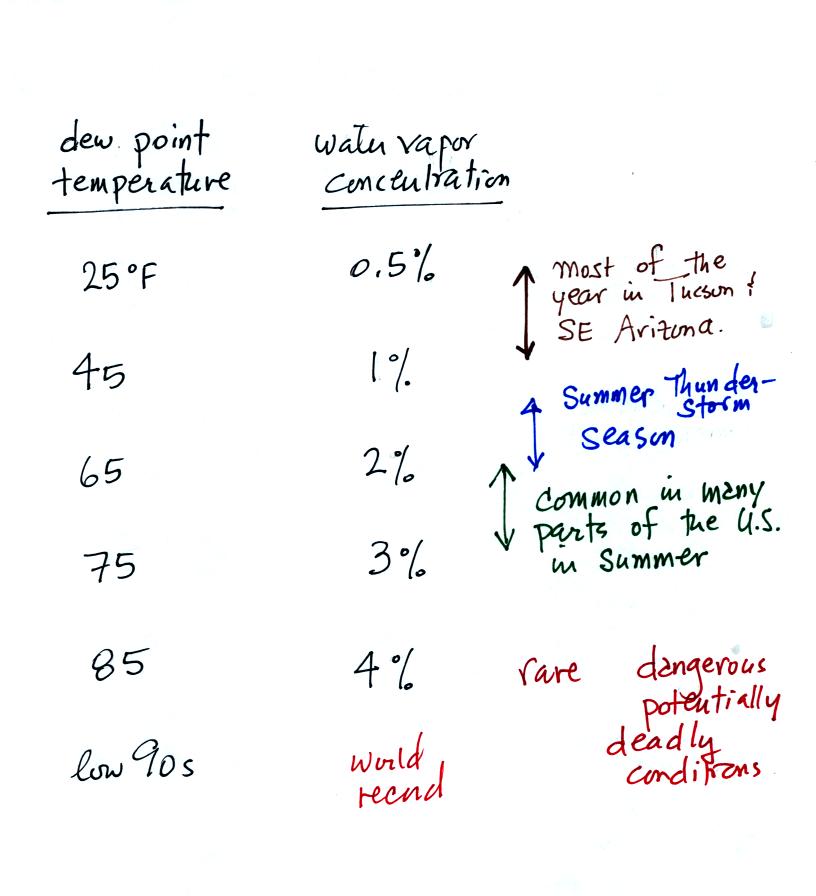 dew point water vapor
temperature concentration
25°F 0.5% most of the
year in Tucson &
SE Arizona.
45 1% Summer Thunder-
storm
season
65 2% common in many
parts of the U.S.
in Summer
75 3%
85 4% rare dangerous
potentially
deadly
conditions
low 90s world
record